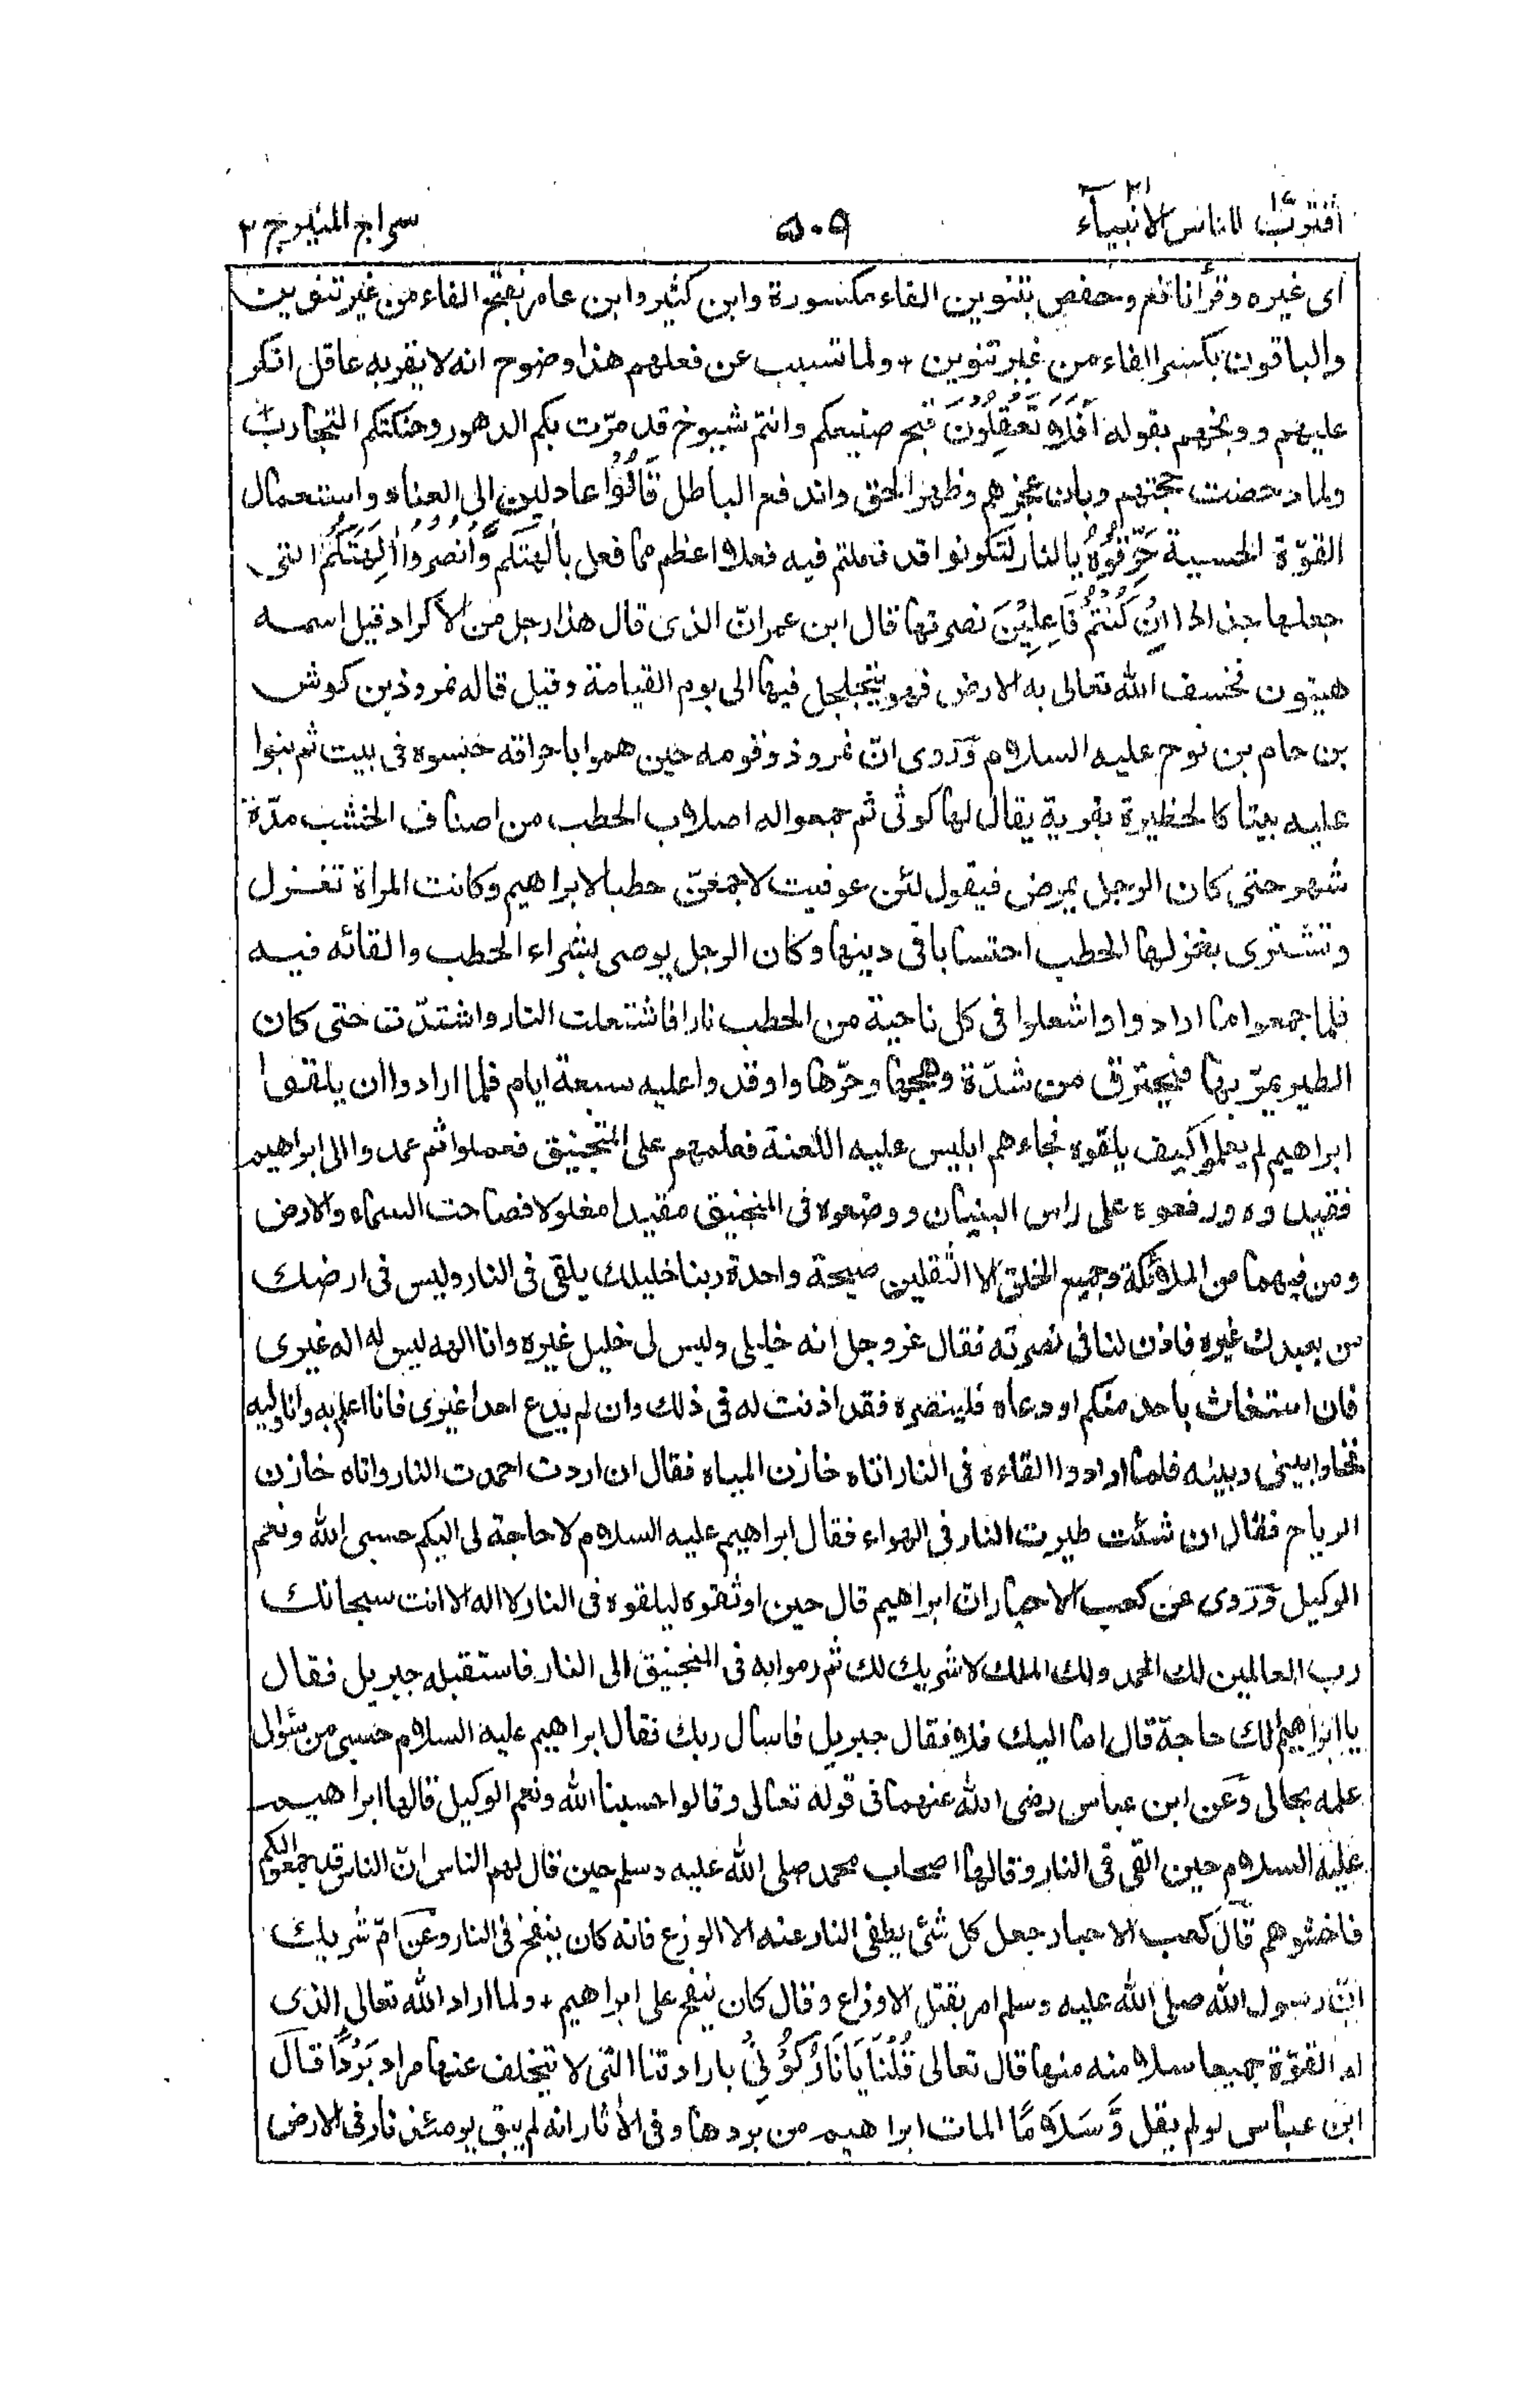 اقترب للناس ١٧ الانبياء ٢١
٥٠٩
سراج المنير ج ٣
اى غيره وقرأ نافع وحفص بتنوين الفاء مكسورة وابن كثير وابن عامر بفتح الفاء من غير تنوين
والباقون بكسر الفاء من غير تنوين + ولما تسبب عن فعلهم هذا وضوح انه لا يقر به عاقل انكر
عليهم ووبخهم بقوله اَفَلَا تَعْقِلُوْنَ قبح صنيعكم وانتم شيوخ قد مرّت بكم الدهور وحنكتكم التجارب +
ولما دحضت حجتهم وبان عجزهم وظهر الحق واندفع الباطل قَالُوْا عادلين الى العناد واستعمال
القوّة الحسية حَرِّقُوْهُ بالنار لتكونوا قد فعلتم فيه فعلا اعظم مما فعل بآلهتكم وَانْصُرُوْا اٰلِهَتَكُمْ التى
جعلها جذاذا اِنْ كُنْتُمْ فَاعِلِيْنَ نصرتها قال ابن عمر انّ الذى قال هذا رجل من الاكراد قيل اسمه
هينون فخسف الله تعالى به الارض فهو يتجلجل فيها الى يوم القيامة وقيل قاله نمروذ بن كوش
بن حام بن نوح عليه السلام وروى انّ نمروذ وقومه حين هموا باحراقه حبسوه فى بيت ثم بنوا
عليه بيتا كالحظيرة بقرية يقال لها كوثى ثم جمعوا له اصلاب الحطب من اصناف الخشب مدّة
شهر حتى كان الرجل يمرض فيقول لئن عوفيت لاجمعنّ حطبا لابراهيم وكانت المراة تغزل
وتشترى بغزلها الحطب احتسابا فى دينها وكان الرجل يوصى بشراء الحطب والقائه فيه
فلما جمعوا ما ارادوا واشعلوا فى كل ناحية من الحطب نارا فاشتعلت النار واشتدّت حتى كان
الطير يمرّ بها فيحترق من شدّة وهجها وحرّها واوقدوا عليه سبعة ايام فلما ارادوا ان يلقوا
ابراهيم لم يعلموا كيف يلقوه فجاءهم ابليس عليه اللعنة فعلمهم على المنجنيق فعملوا ثم عمدوا الى ابراهيم
فقيدوه ورفعوه على راس البنيان ووضعوه فى المنجنيق مقيدا مغلولا فصاحت السماء والارض
ومن فيهما من الملائكة وجميع الخلق الا الثقلين صيحة واحدة ربنا خليلك يلقى فى النار وليس فى ارضك
من يعبدك غيره فاذن لنا فى نصرته فقال عز وجل انه خليلى وليس لى خليل غيره وانا الهه ليس له اله غيرى
فان استغاث باحد منكم او دعاه فلينصره فقد اذنت له فى ذلك وان لم يدع احدا غيرى فانا اعلم به وانا وليه
فخلوا بينى وبينه فلما ارادوا القاءه فى النار اتاه خازن المياه فقال ان اردت اخمدت النار واتاه خازن
الرياح فقال ان شئت طيرت النار فى الهواء فقال ابراهيم عليه السلام لا حاجة لى اليكم حسبى الله ونعم
الوكيل وروى عن كعب الاحبار انّ ابراهيم قال حين اوثقوه ليلقوه فى النار لا اله الا انت سبحانك
رب العالمين لك الحمد ولك الملك لا شريك لك ثم رموا به فى المنجنيق الى النار فاستقبله جبريل فقال
يا ابراهيم الك حاجة قال اما اليك فلا فقال جبريل فاسال ربك فقال ابراهيم عليه السلام حسبى من سؤالى
علمه بحالى وعن ابن عباس رضى الله عنهما فى قوله تعالى وقالوا حسبنا الله ونعم الوكيل قالها ابراهيم
عليه السلام حين القى فى النار وقالها اصحاب محمد صلى الله عليه وسلم حين قال لهم الناس انّ الناس قد جمعوا لكم
فاخشوهم قال كعب الاحبار جعل كل شئ يطفى النار عنه الا الوزغ فانه كان ينفخ فى النار وعن امّ شريك
انّ رسول الله صلى الله عليه وسلم امر بقتل الاوزاغ وقال كان ينفخ على ابراهيم + ولما اراد الله تعالى الذى
له القوّة جميعا سلامته منها قال تعالى قُلْنَا يَا نَارُ كُوْنِىْ بارادتنا التى لا يتخلف عنها مراد بَرْدًا قال
ابن عباس لو لم يقل وَّسَلَامًا لمات ابراهيم من بردها وفى الآثار انه لم يبق يومئذ نار فى الارض